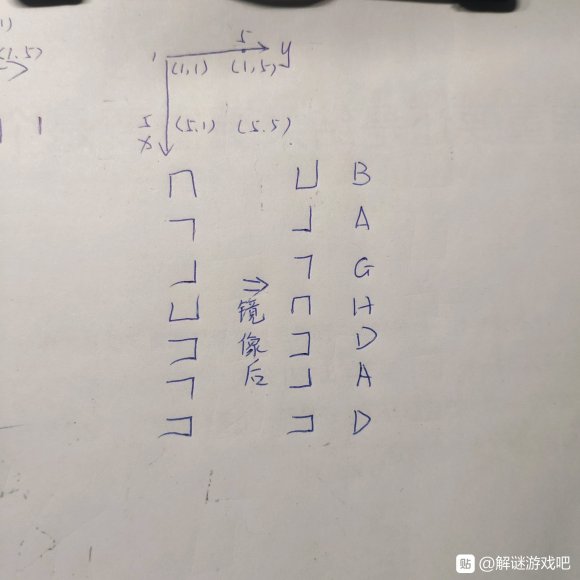 1)
(1.5)
1
5
1 y
(1,1) (1,5)
5 (5.1) (5.5)
x
B
A
G
⇒ H
镜 D
像 A
后 D
贴 @解谜游戏吧